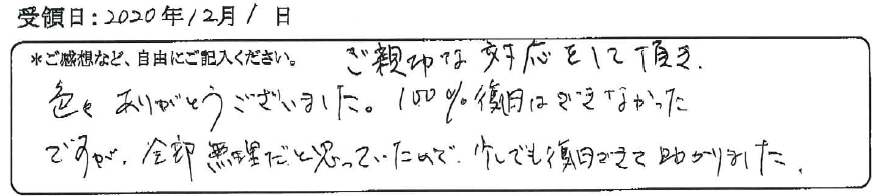 受領日:2020年12月1日
*ご感想など、自由にご記入ください。 ご親切な対応をして頂き、
色々ありがとうございました。100%復旧はできなかった
ですが、全部無理だと思っていたので、少しでも復旧できて助かりました。